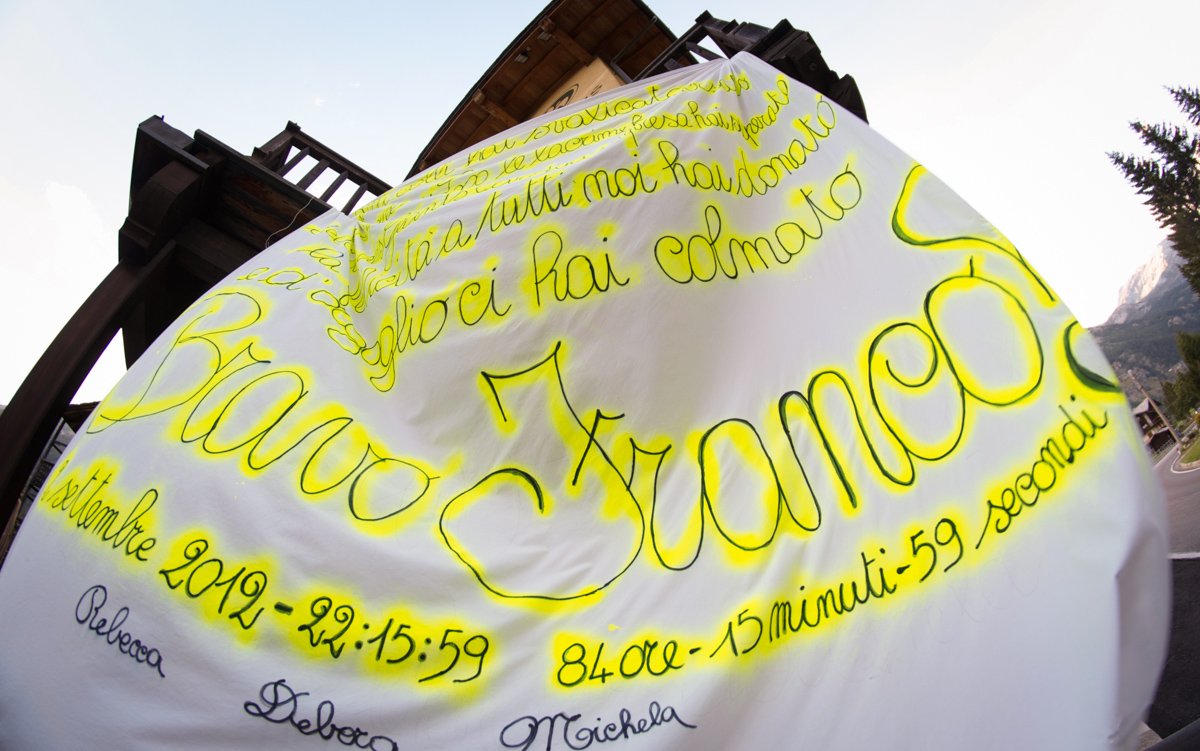 hai
le lacrime
a tutti noi hai donato
e d'orgoglio ci hai colmato
Bravo Franco
settembre 2012 - 22:15:59
84 ore - 15 minuti - 59 secondi
Rebecca
Debora
Michela